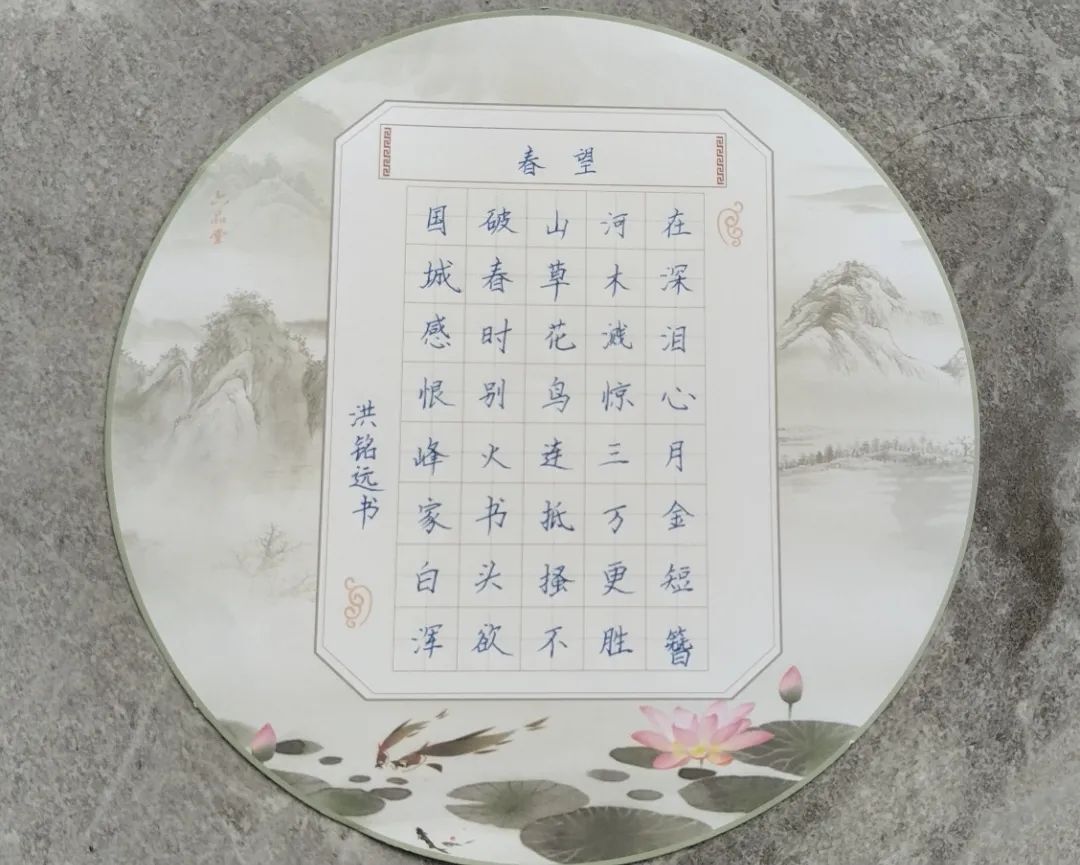 春望
国破山河在
城春草木深
感时花溅泪
恨别鸟惊心
峰火连三月
家书抵万金
白头搔更短
浑欲不胜簪
洪铭远书
六品堂